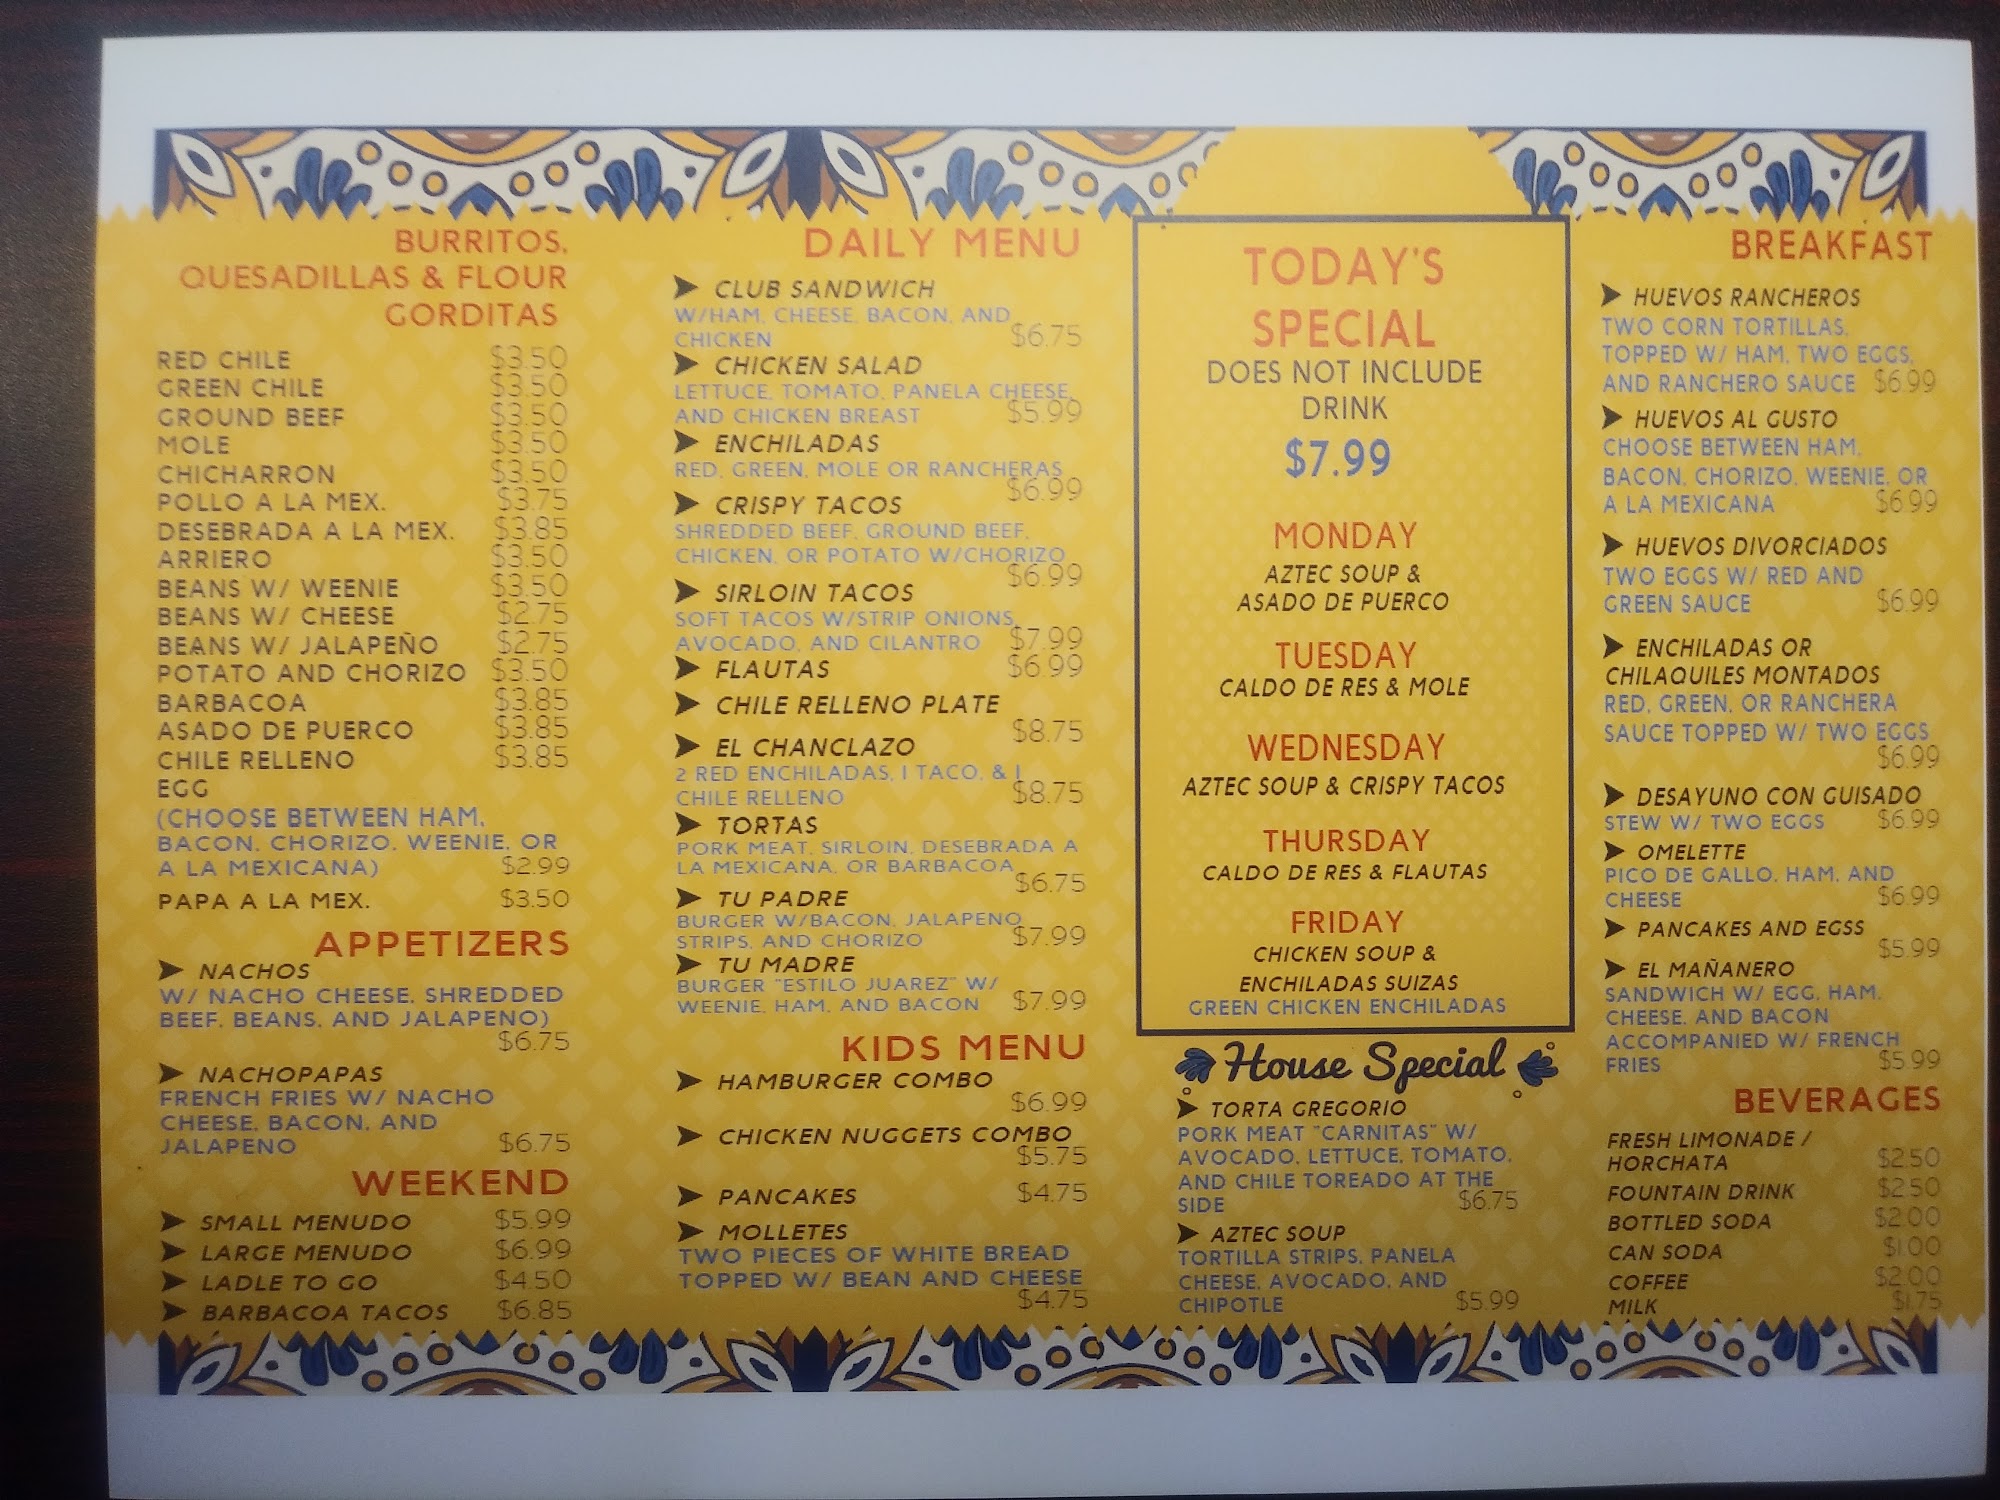 BURRITOS,
QUESADILLAS & FLOUR
GORDITAS
RED CHILE $3.50
GREEN CHILE $3.50
GROUND BEEF $3.50
MOLE $3.50
CHICHARRON $3.50
POLLO A LA MEX. $3.75
DESEBRADA A LA MEX. $3.85
ARRIERO $3.50
BEANS W/ WEENIE $3.50
BEANS W/ CHEESE $2.75
BEANS W/ JALAPEÑO $2.75
POTATO AND CHORIZO $3.50
BARBACOA $3.85
ASADO DE PUERCO $3.85
CHILE RELLENO $3.85
EGG
(CHOOSE BETWEEN HAM,
BACON, CHORIZO, WEENIE, OR
A LA MEXICANA) $2.99
PAPA A LA MEX. $3.50
APPETIZERS
NACHOS
W/ NACHO CHEESE, SHREDDED
BEEF, BEANS, AND JALAPENO)
$6.75
NACHOPAPAS
FRENCH FRIES W/ NACHO
CHEESE, BACON, AND
JALAPENO $6.75
WEEKEND
SMALL MENUDO $5.99
LARGE MENUDO $6.99
LADLE TO GO $4.50
BARBACOA TACOS $6.85
DAILY MENU
CLUB SANDWICH
W/HAM, CHEESE, BACON, AND
CHICKEN $6.75
CHICKEN SALAD
LETTUCE, TOMATO, PANELA CHEESE,
AND CHICKEN BREAST $5.99
ENCHILADAS
RED, GREEN, MOLE OR RANCHERAS
$6.99
CRISPY TACOS
SHREDDED BEEF, GROUND BEEF,
CHICKEN, OR POTATO W/CHORIZO
$6.99
SIRLOIN TACOS
SOFT TACOS W/STRIP ONIONS,
AVOCADO, AND CILANTRO $7.99
FLAUTAS $6.99
CHILE RELLENO PLATE
$8.75
EL CHANCLAZO
2 RED ENCHILADAS, 1 TACO, & 1
CHILE RELLENO $8.75
TORTAS
PORK MEAT, SIRLOIN, DESEBRADA A
LA MEXICANA, OR BARBACOA
$6.75
TU PADRE
BURGER W/BACON, JALAPENO
STRIPS, AND CHORIZO $7.99
TU MADRE
BURGER "ESTILO JUAREZ" W/
WEENIE, HAM, AND BACON $7.99
KIDS MENU
HAMBURGER COMBO
$6.99
CHICKEN NUGGETS COMBO
$5.75
PANCAKES $4.75
MOLLETES
TWO PIECES OF WHITE BREAD
TOPPED W/ BEAN AND CHEESE
$4.75
TODAY'S
SPECIAL
DOES NOT INCLUDE
DRINK
$7.99
MONDAY
AZTEC SOUP &
ASADO DE PUERCO
TUESDAY
CALDO DE RES & MOLE
WEDNESDAY
AZTEC SOUP & CRISPY TACOS
THURSDAY
CALDO DE RES & FLAUTAS
FRIDAY
CHICKEN SOUP &
ENCHILADAS SUIZAS
GREEN CHICKEN ENCHILADAS
House Special
TORTA GREGORIO
PORK MEAT "CARNITAS" W/
AVOCADO, LETTUCE, TOMATO,
AND CHILE TOREADO AT THE
SIDE $6.75
AZTEC SOUP
TORTILLA STRIPS, PANELA
CHEESE, AVOCADO, AND
CHIPOTLE $5.99
BREAKFAST
HUEVOS RANCHEROS
TWO CORN TORTILLAS,
TOPPED W/ HAM, TWO EGGS,
AND RANCHERO SAUCE $6.99
HUEVOS AL GUSTO
CHOOSE BETWEEN HAM,
BACON, CHORIZO, WEENIE, OR
A LA MEXICANA $6.99
HUEVOS DIVORCIADOS
TWO EGGS W/ RED AND
GREEN SAUCE $6.99
ENCHILADAS OR
CHILAQUILES MONTADOS
RED, GREEN, OR RANCHERA
SAUCE TOPPED W/ TWO EGGS
$6.99
DESAYUNO CON GUISADO
STEW W/ TWO EGGS $6.99
OMELETTE
PICO DE GALLO, HAM, AND
CHEESE $6.99
PANCAKES AND EGSS
$5.99
EL MAÑANERO
SANDWICH W/ EGG, HAM,
CHEESE, AND BACON
ACCOMPANIED W/ FRENCH
FRIES $5.99
BEVERAGES
FRESH LIMONADE /
HORCHATA $2.50
FOUNTAIN DRINK $2.50
BOTTLED SODA $2.00
CAN SODA $1.00
COFFEE $2.00
MILK $1.75